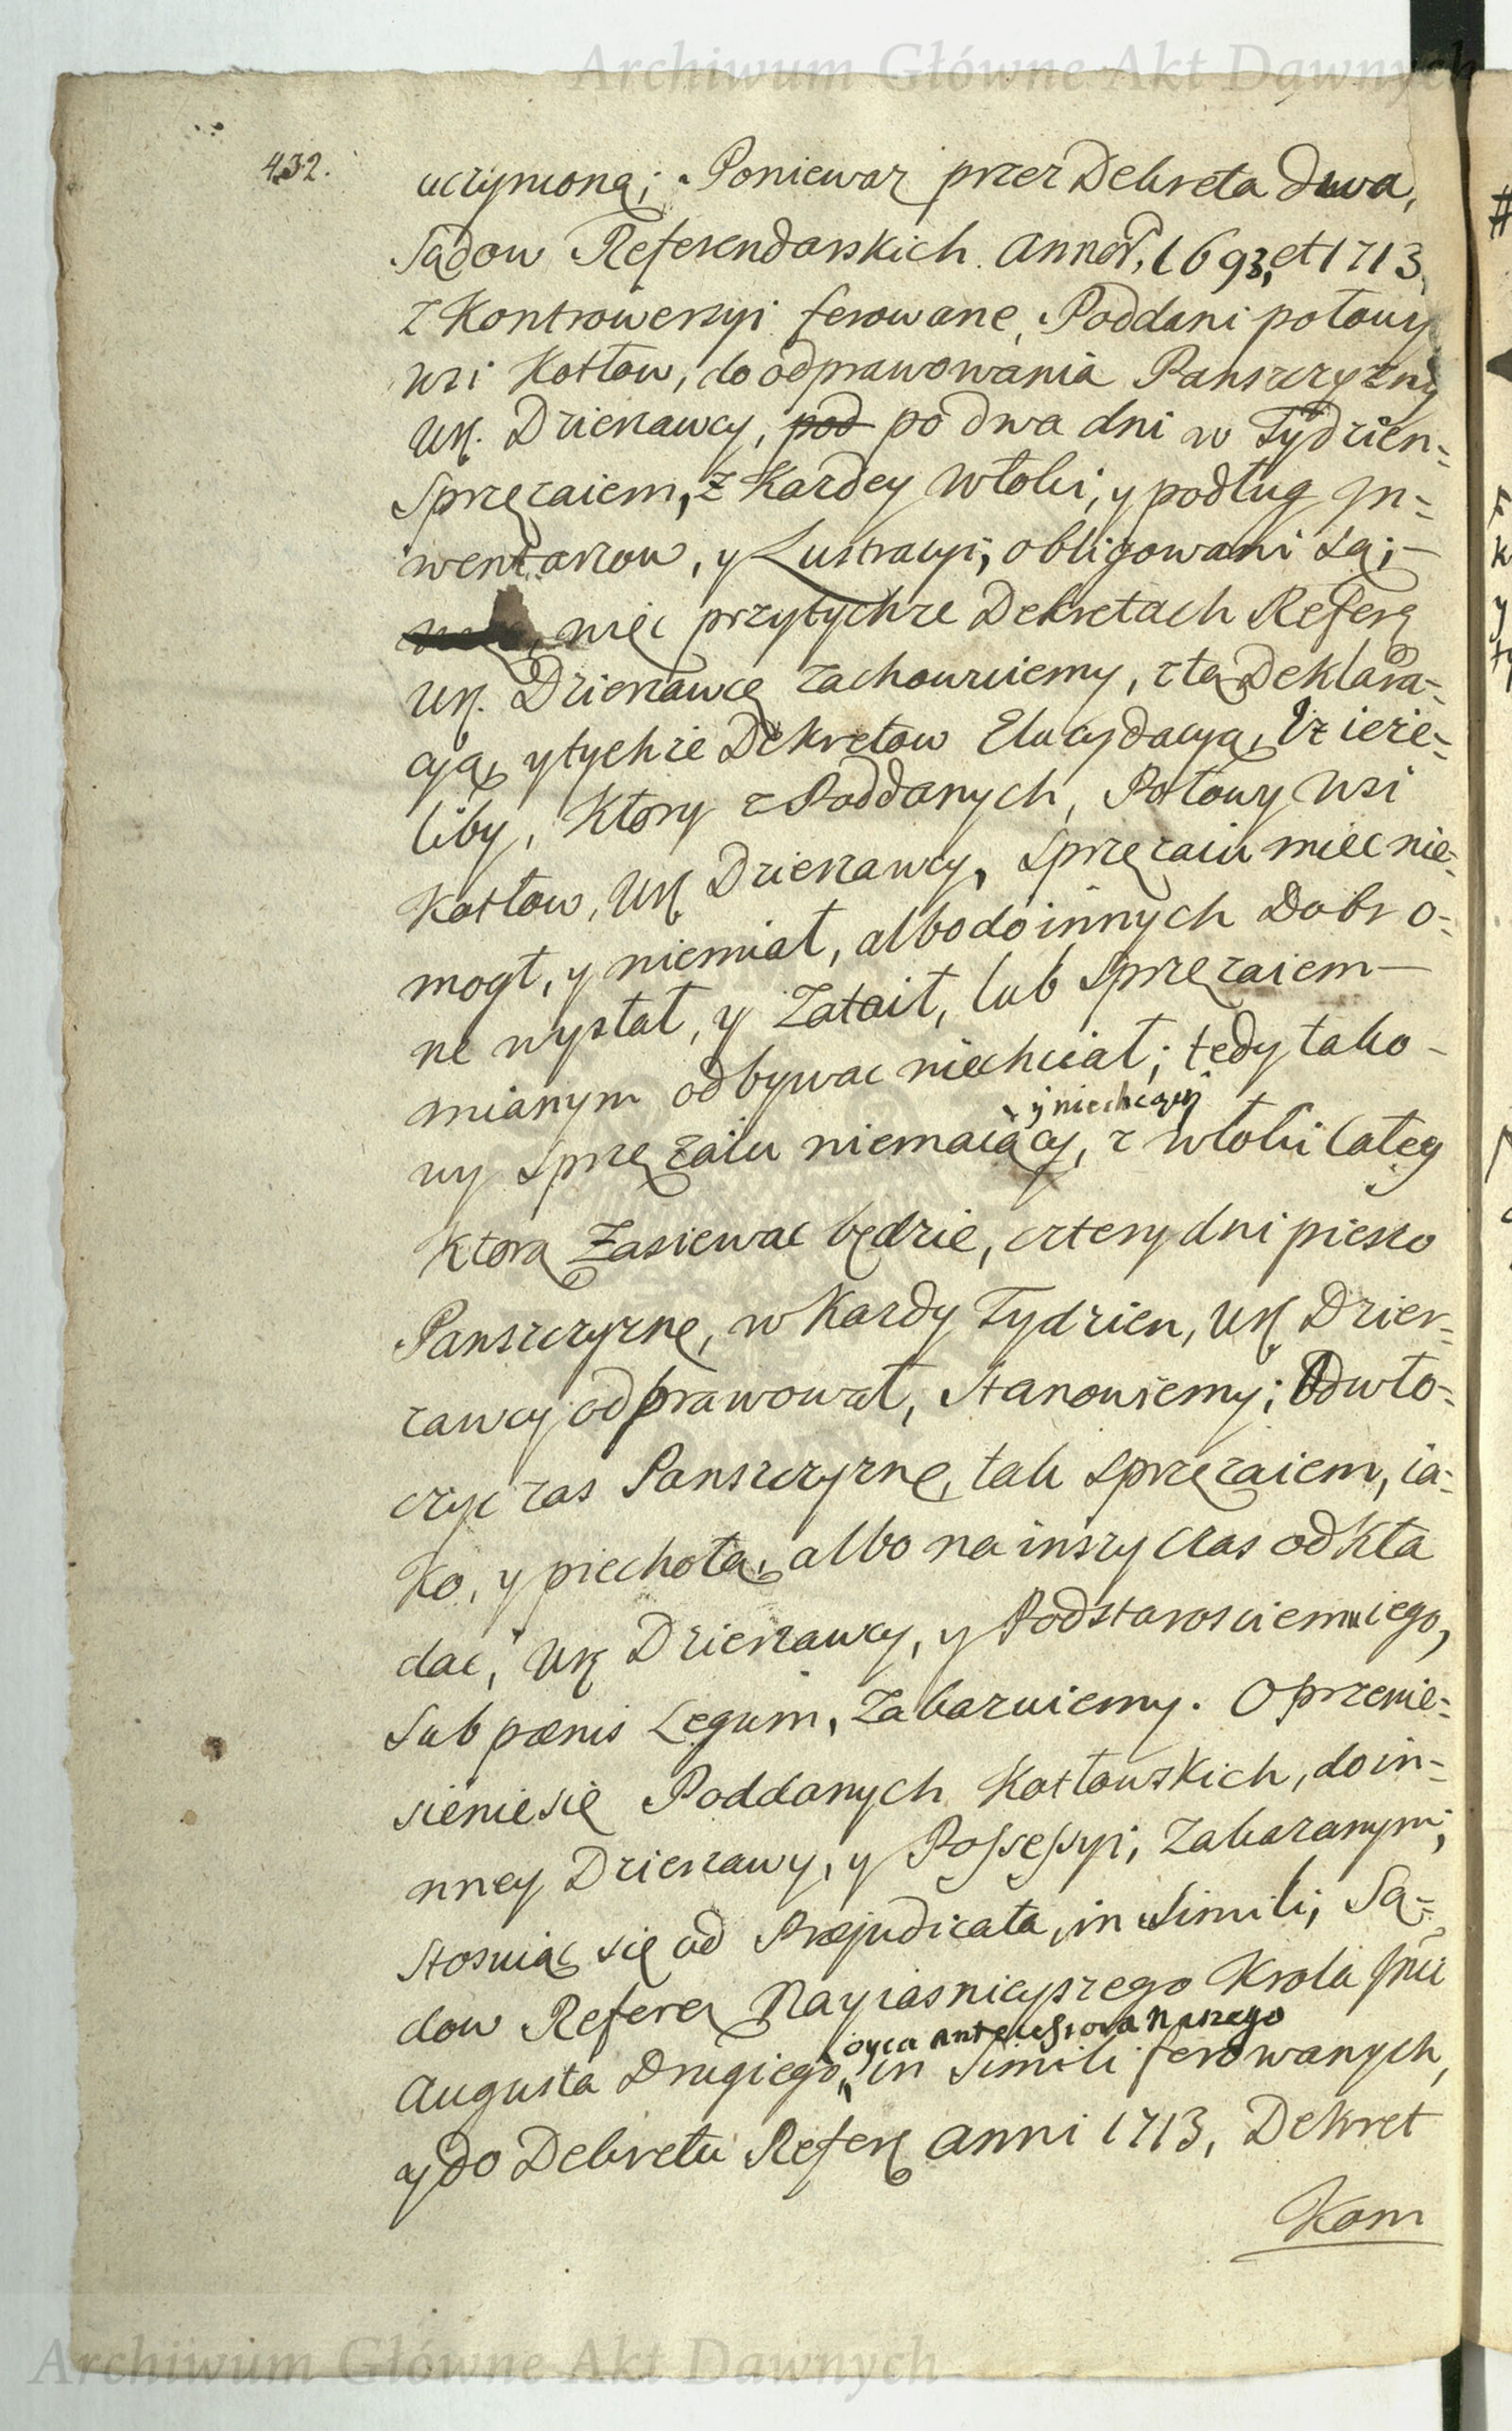 Archiwum Główne Akt Dawnych
432.
uczynioną; Poniewaz przez Dekreta dwa,
Sądow Referendarskich annor. 1693, et 1713,
z Kontrowersyi ferowane, Poddani połowy
wsi Kotłow, do odprawowania Panszczyzny
Ur. Dzierzawcy, pod po dwa dni w Tydzien=
Sprzęzaiem, z Kazdey włoki, y podług In=
wentarzow, y Lustracyi, obligowani są;—
więc przytychze Dekretach Referą
Ur. Dzierzawcę zachowuiemy, z tą Deklara=
cyą, y tychze Dekretow Elucydacyą, Iz ieze=
liby, Ktory z Poddanych, Połowy wsi
Kotłow, Ur. Dzierzawcy, Sprzęzaiu miec nie=
mogł, y niemiał, albo do innych Dobr o=
ne wysłał, y Zataił, lub Sprzęzaiem—
mianym odbywac niechciał; tedy tako-
y niechcący
wy Sprzęzaiu niemaiący, z włoki całey
Ktorą Zasiewac będzie, cztery dni pieszo
Panszczyznę, w Kazdy Tydzien, Ur. Dzier=
zawcy odprawował, Stanowiemy; Odwło=
czyc zas Panszczyznę, tak Sprzęzaiem, ia=
Ko, y piechotą, albo na inszy czas odkła
dac, Ur. Dzierzawcy, y Podstarosciemu iego,
Sub pænis Legum, Zakazuiemy. O przenie=
sienie się Poddanych Kotłowskich, do in=
nney Dzierzawy, y Possessyi, Zakazanym;
Stosuiąc się ad Præjudicata, in Simili, Są=
dow Refer. Nayiasnieyszego Krola Jmci
oyca antecessora Naszego
Augusta Drugiego, in Simili ferowanych,
y do Dekretu Refer. anni 1713, Dekret
Kom
Archiwum Główne Akt Dawnych